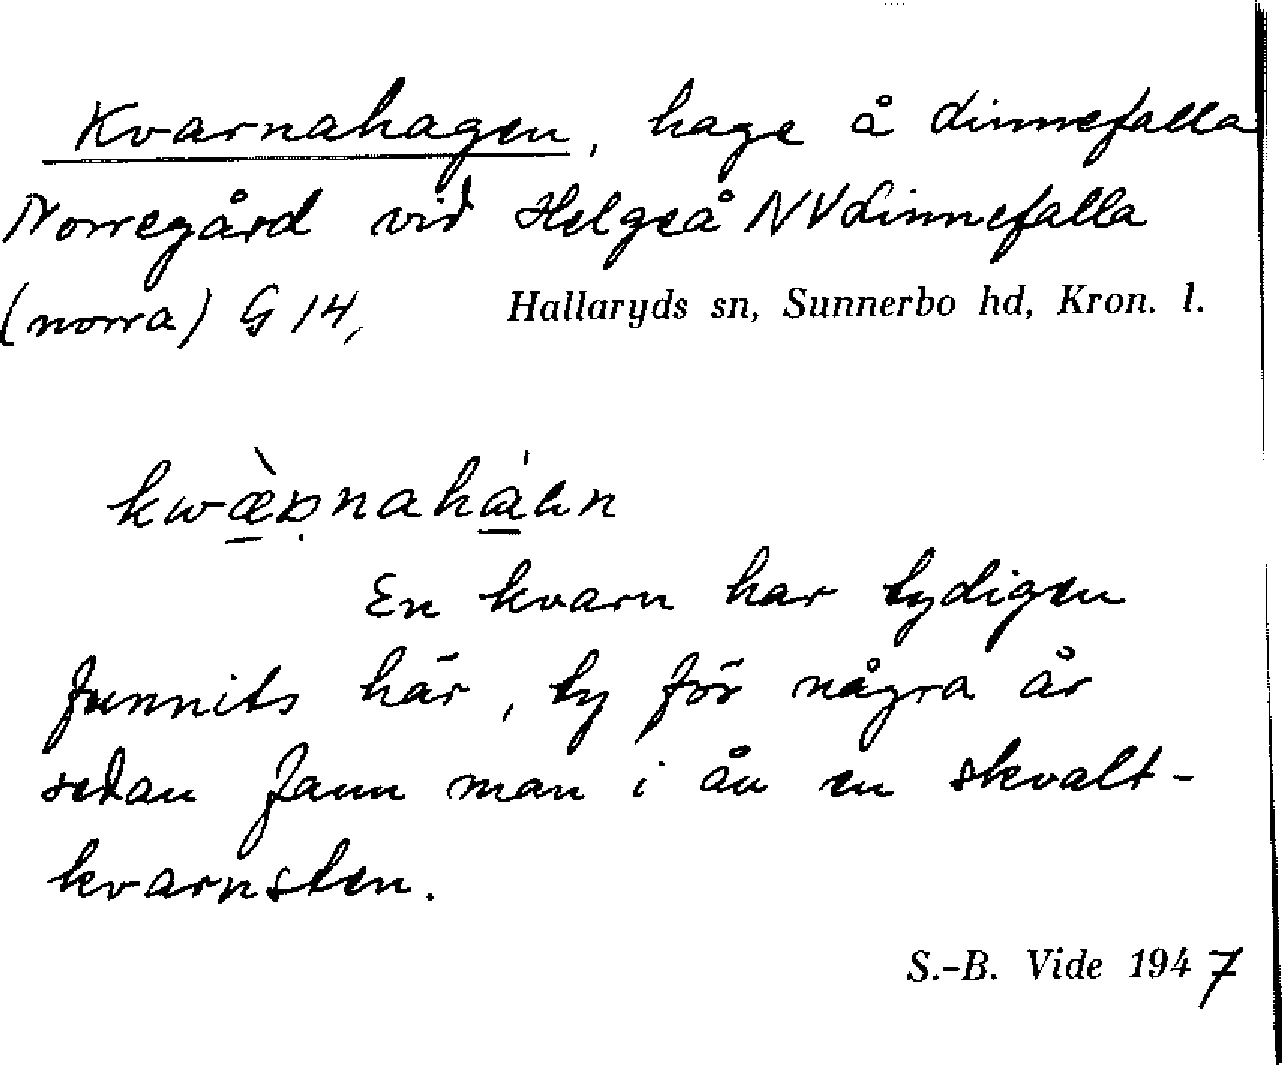 Kvarnahagen, hage å Linnefalla
Norregård vid Helgeå NV Linnefalla
(norra) G 14, Hallaryds sn, Sunnerbo hd, Kron. l.
En kvarn har tydigen
funnits här, ty för några år
sedan fann man i ån en skvalt-
kvarnsten.
S.-B. Vide 1947